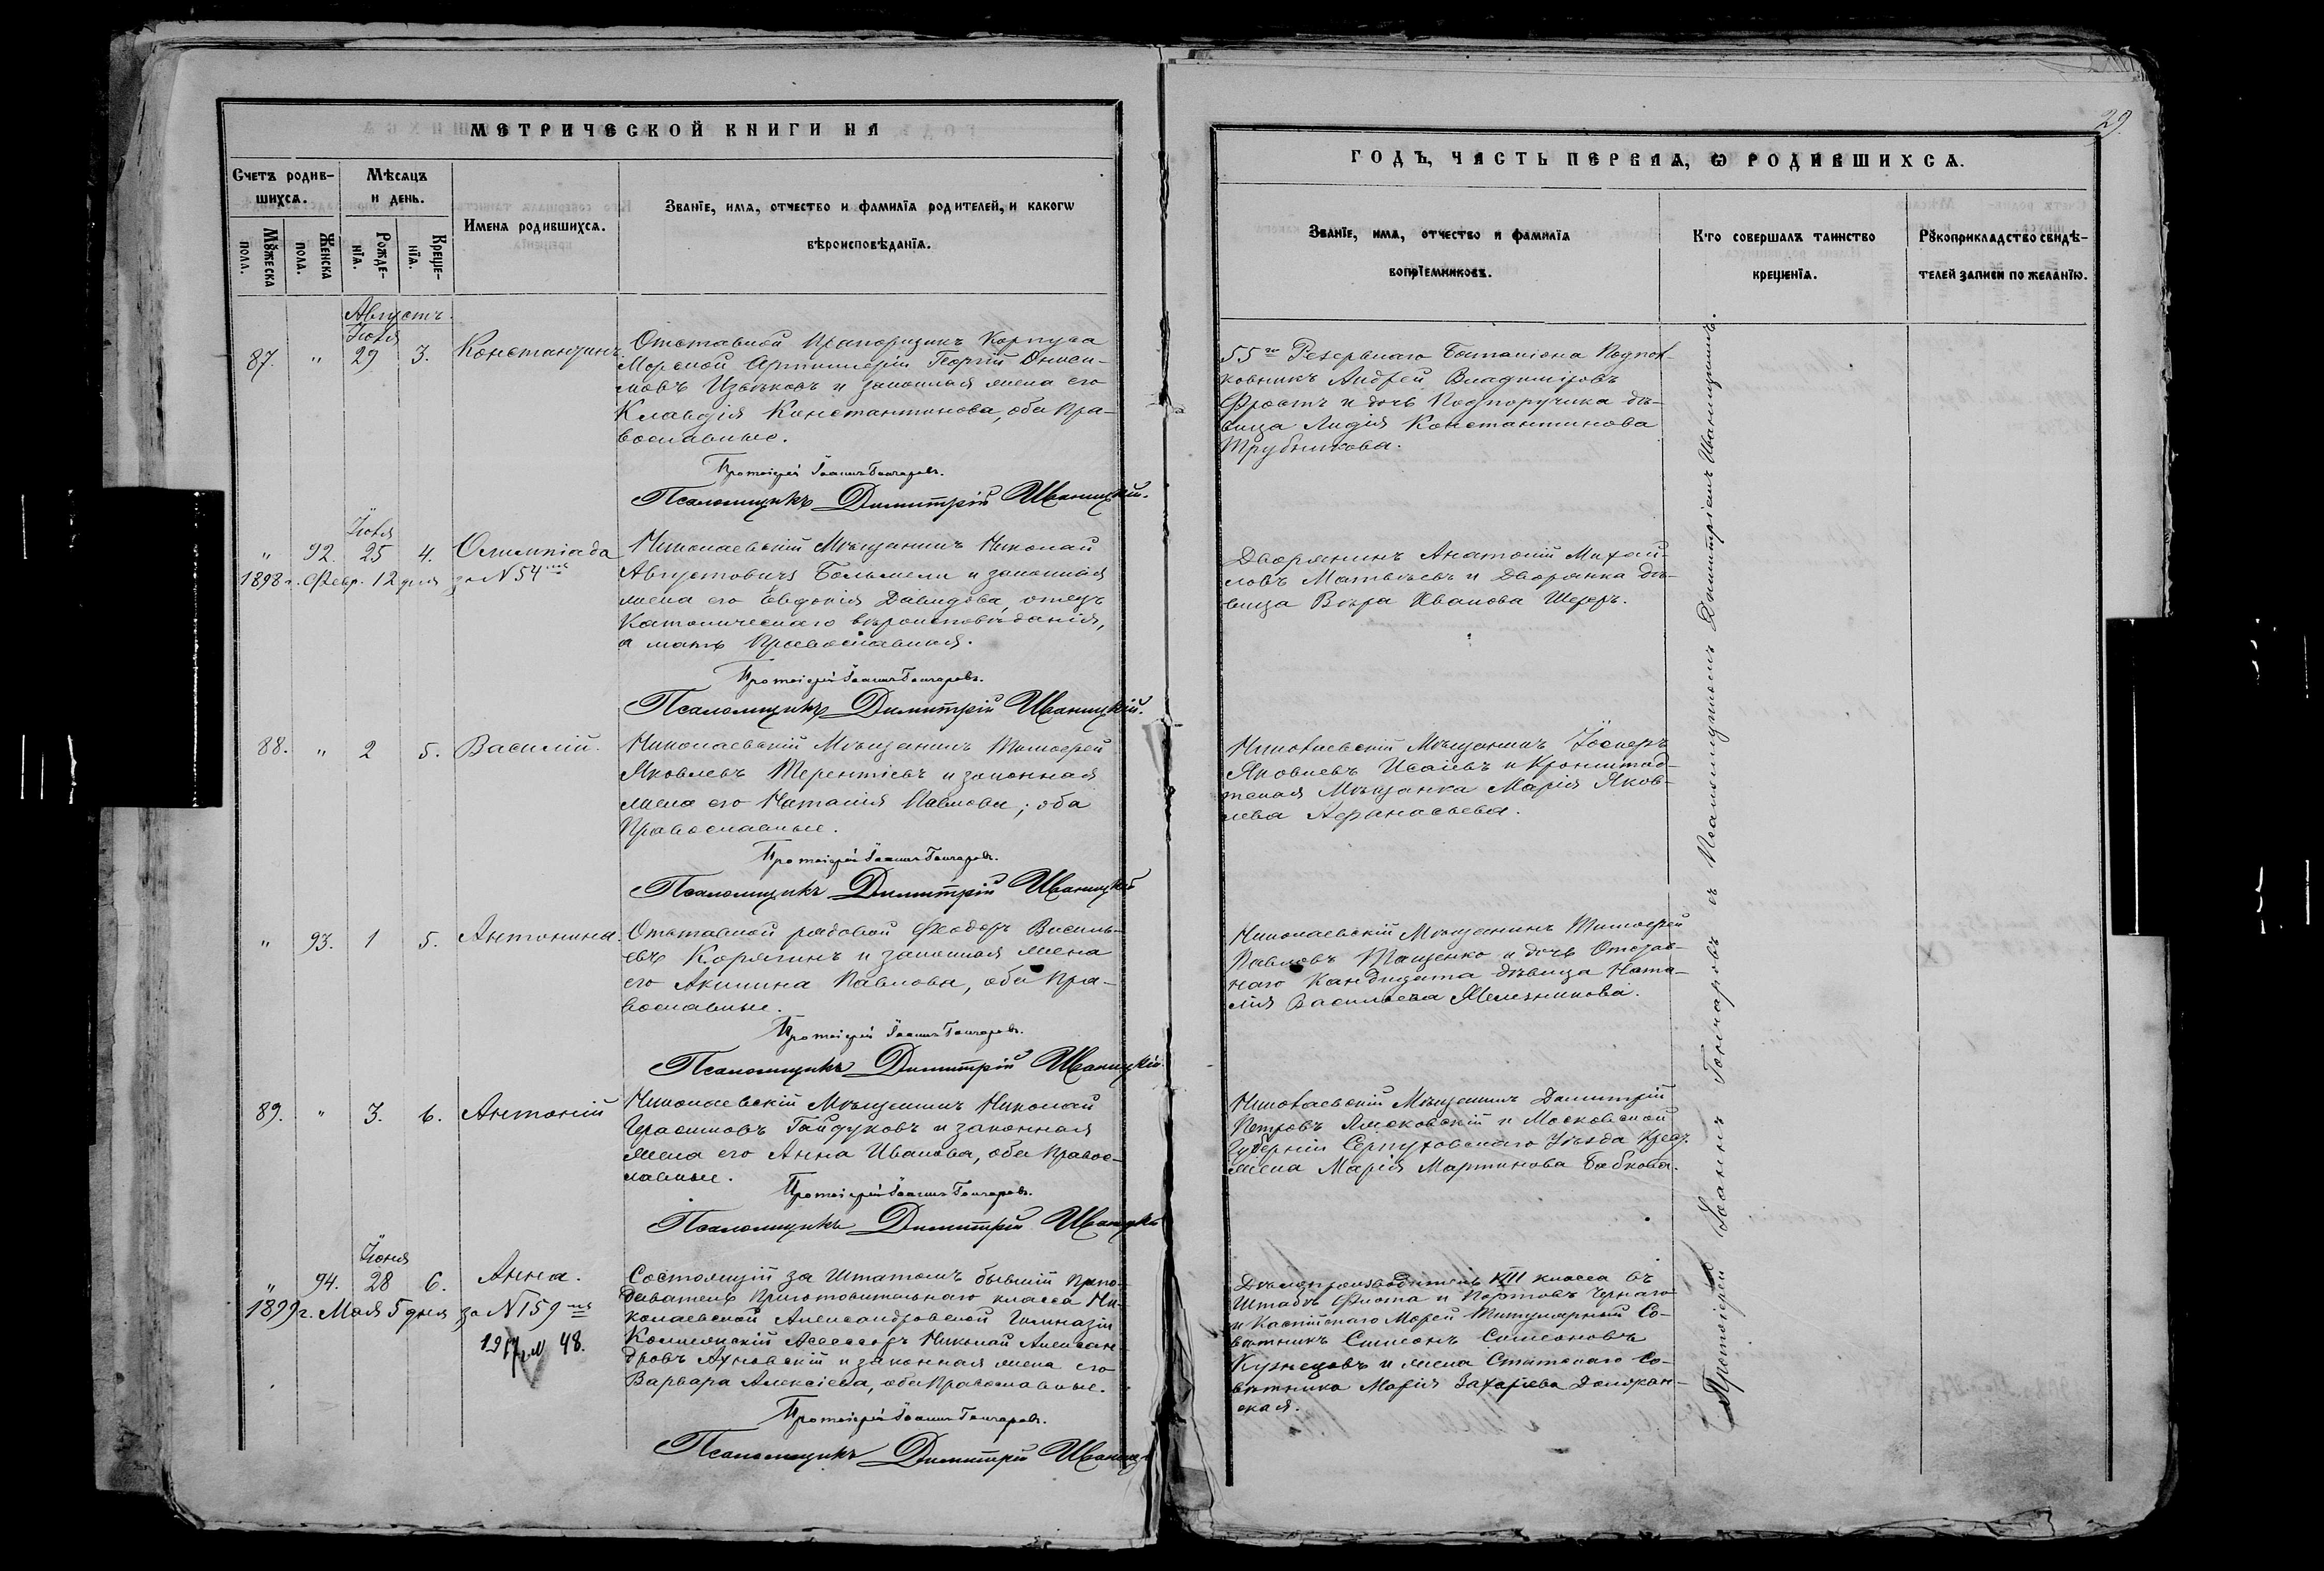 МЕТРИЧЕСКОЙ КНИГИ НА
Счетъ родив-
шихся.
Мѣсяцъ
и день.
Имена родившихся.
Званїе, имя, отчество и фамилїя родителей, и какогѡ
вѣроисповѣданїя.
Мꙋжеска
пола.
Женска
пола.
Рожде-
нїя.
Креще-
нїя.
Августъ.
Іюля
87. " 29 3. Константинъ.
Отставной Прапорщикъ Корпуса
Морской Артиллеріи Георгій Ониси-
мовъ Извѣковъ и законная жена его
Клавдія Константинова, оба пра-
вославные.
Протоіерей Іоаннъ Гончаровъ.
Псаломщикъ Димитрій Иваницкій.
Іюля
" 92. 25 4. Олимпіада
1898 г. Февр. 12 дня за N 54
Николаевскій Мѣщанинъ Николай
Августовичъ и законная
жена его Евдокія Давидова, отецъ
Католическаго вѣроисповѣданія,
а мать Православная.
Протоіерей Іоаннъ Гончаровъ.
Псаломщикъ Димитрій Иваницкій.
88. " 2 5. Василій.
Николаевскій Мѣщанинъ Тимофей
Яковлевъ Терентіевъ и законная
жена его Наталія Павлова; оба
Православные.
Протоіерей Іоаннъ Гончаровъ.
Псаломщикъ Димитрій Иваницкій
" 93. 1 5. Антонина.
Отставной рядовой Феодоръ Василь-
евъ Корягинъ и законная жена
его Акилина Павлова, оба Пра-
вославные.
Протоіерей Іоаннъ Гончаровъ.
Псаломщикъ Димитрій Иваницкій.
89. " 3. 6. Антоній
Николаевскій Мѣщанинъ Николай
Герасимовъ Гайдуковъ и законная
жена его Анна Иванова, оба Право-
славные.
Протоіерей Іоаннъ Гончаровъ.
Псаломщикъ Димитрій Иваницкій
Іюня
" 94. 28 6. Анна.
1899 г. Мая 5 дня за N 159
48.
Состоящій за Штатомъ бывшій Препо-
даватель Приготовительнаго класса Ни-
колаевской Александровской Гимназіи
Коллежскій Ассесоръ Николай Алексан-
дровъ и законная жена его
Варвара Алексіева, оба Православные.
Протоіерей Іоаннъ Гончаровъ.
Псаломщикъ Димитрій Иваницкій
29.
ГОДЪ, ЧАСТЬ ПЕРВАЯ, Ѡ РОДИВШИХСЯ.
Званїе, имя, отчество и фамилїя
воспрїемниковъ.
Кто совершалъ таинство
крещенїя.
Рꙋкоприкладство свидѣ-
телей записи по желанїю.
55го Резервнаго Баталіона Подпол-
ковникъ Андрей Владиміровъ
Фростъ и дочь Подпоручика дѣ-
вица Лидія Константинова
Трубникова.
Дворянинъ Анатолій Михай-
ловъ Матвѣевъ и Дворянка дѣ-
вица Вѣра Иванова
Николаевскій Мѣщанинъ
Яковлевъ Исаевъ и Кронштад-
тская Мѣщанка Марія Яков-
лева Афанасьева.
Николаевскій Мѣщанинъ Тимофей
Павловъ Тащенко и дочь Отстав-
наго Кандидата дѣвица Ната-
лія Васильева
Николаевскій Мѣщанинъ Димитрій
Петровъ и Московской
Губерніи Серпуховскаго Уѣзда Крест.
жена Марія Мартинова Бабкова.
Дѣлопроизводитель VIII класса въ
Штабѣ Флота и Портовъ Чернаго
и Каспійскаго Морей Титулярный Со-
вѣтникъ Симеонъ Симеоновъ
Кузнецовъ и жена Статскаго Со-
вѣтника Марія Захаріева Должан-
ская.
Протоіерей Іоаннъ Гончаровъ съ Псаломщикомъ Димитріемъ Иваницкимъ.